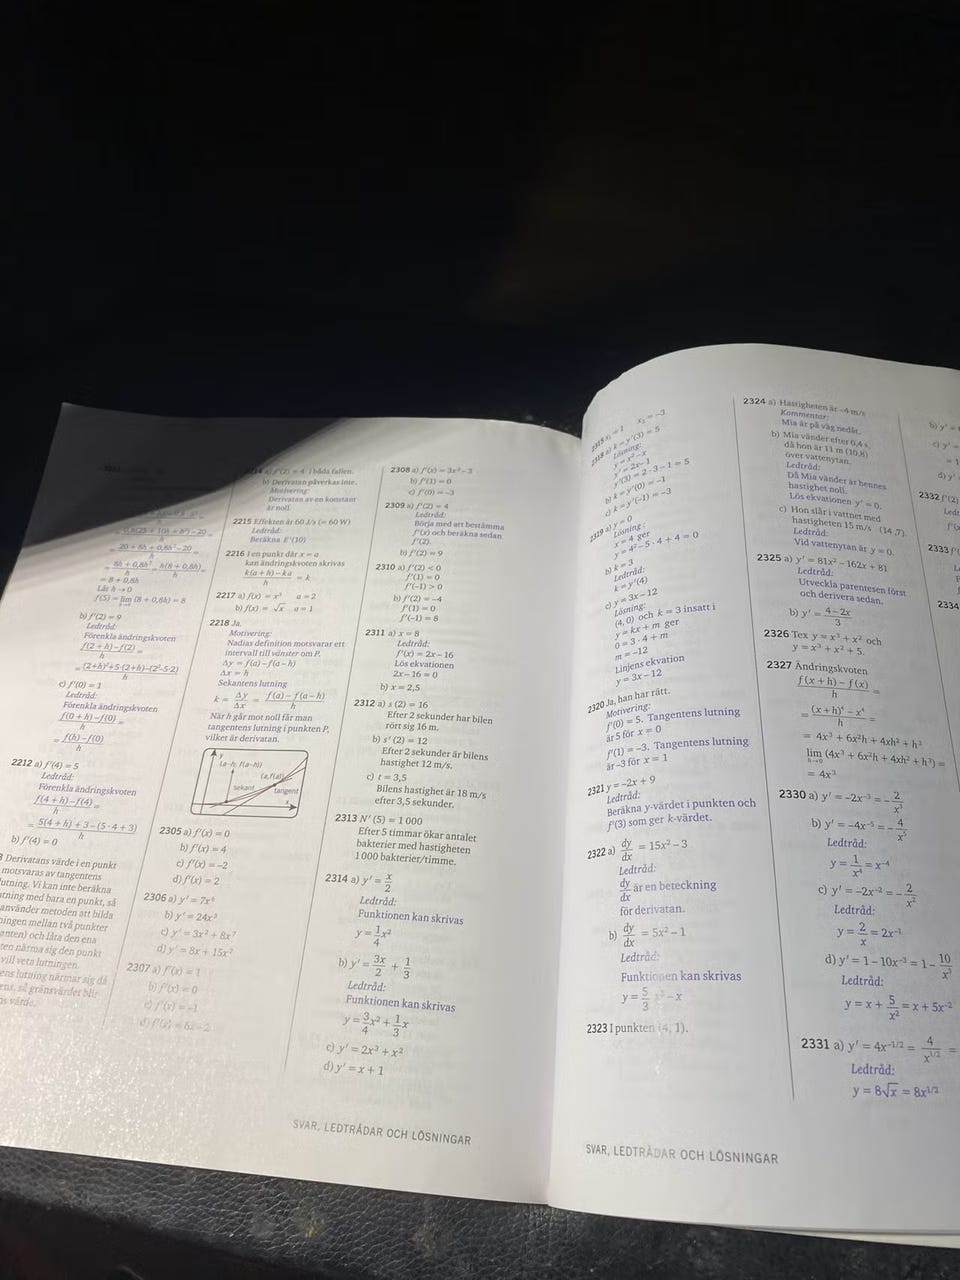 0,8(25 + 10h + h²) – 20
h
20 + 8h + 0,8h² – 20
h
8h + 0,8h² = h(8 + 0,8h) =
h h
= 8 + 0,8h
Låt h → 0
f'(5) = lim (8 + 0,8h) = 8
h→0
b) f'(2) = 9
Ledtråd:
Förenkla ändringskvoten
f(2 + h) – f(2) =
h
= (2+h)² + 5·(2+h) – (2² + 5·2)
h
c) f'(0) = 1
Ledtråd:
Förenkla ändringskvoten
f(0 + h) – f(0) =
h
= f(h) – f(0)
h
2212 a) f'(4) = 5
Ledtråd:
Förenkla ändringskvoten
f(4 + h) – f(4) =
h
= 5(4 + h) + 3 – (5 · 4 + 3)
h
b) f'(4) = 0
Derivatans värde i en punkt
motsvaras av tangentens
lutning. Vi kan inte beräkna
med bara en punkt, så
använder metoden att bilda
mellan två punkter
och låta den ena
närma sig den punkt
vill veta lutningen.
lutning närmar sig då
så gränsvärdet blir
värde.
2214 a) f'(2) = 4 i båda fallen.
b) Derivatan påverkas inte.
Motivering:
Derivatan av en konstant
är noll.
2215 Effekten är 60 J/s (= 60 W)
Ledtråd:
Beräkna E'(10)
2216 I en punkt där x = a
kan ändringskvoten skrivas
k(a + h) – ka = k
h
2217 a) f(x) = x³ a = 2
b) f(x) = √x a = 1
2218 Ja.
Motivering:
Nadias definition motsvarar ett
intervall till vänster om P.
Δy = f(a) – f(a – h)
Δx = h
Sekantens lutning
k = Δy = f(a) – f(a – h)
Δx h
När h går mot noll får man
tangentens lutning i punkten P,
vilket är derivatan.
y
(a–h; f(a–h))
(a, f(a))
sekant
tangent
x
2305 a) f'(x) = 0
b) f'(x) = 4
c) f'(x) = –2
d) f'(x) = 2
2306 a) y' = 7x⁶
b) y' = 24x³
c) y' = 3x² + 8x⁷
d) y' = 8x + 15x²
2307 a) f'(x) = 1
b) f'(x) = 0
c) f'(x) = –1
d) f'(x) = 6x – 2
2308 a) f'(x) = 3x² – 3
b) f'(1) = 0
c) f'(0) = –3
2309 a) f'(2) = 4
Ledtråd:
Börja med att bestämma
f'(x) och beräkna sedan
f'(2).
b) f'(2) = 9
2310 a) f'(2) < 0
f'(1) = 0
f'(–1) > 0
b) f'(2) = –4
f'(1) = 0
f'(–1) = 8
2311 a) x = 8
Ledtråd:
f'(x) = 2x – 16
Lös ekvationen
2x – 16 = 0
b) x = 2,5
2312 a) s (2) = 16
Efter 2 sekunder har bilen
rört sig 16 m.
b) s' (2) = 12
Efter 2 sekunder är bilens
hastighet 12 m/s.
c) t = 3,5
Bilens hastighet är 18 m/s
efter 3,5 sekunder.
2313 N' (5) = 1 000
Efter 5 timmar ökar antalet
bakterier med hastigheten
1 000 bakterier/timme.
2314 a) y' = x
2
Ledtråd:
Funktionen kan skrivas
y = 1 x²
4
b) y' = 3x + 1
2 3
Ledtråd:
Funktionen kan skrivas
y = 3 x² + 1 x
4 3
c) y' = 2x³ + x²
d) y' = x + 1
SVAR, LEDTRÅDAR OCH LÖSNINGAR
x₂ = –3
k = y'(3) = 5
Lösning:
y = x² – x
y' = 2x – 1
y'(3) = 2 · 3 – 1 = 5
b) k = y'(0) = –1
c) k = y'(–1) = –3
2319 a) y = 0
Lösning:
x = 4 ger
y = 4² – 5 · 4 + 4 = 0
b) k = 3
Ledtråd:
k = y'(4)
c) y = 3x – 12
Lösning:
(4, 0) och k = 3 insatt i
y = kx + m ger
0 = 3 · 4 + m
m = –12
Linjens ekvation
y = 3x – 12
2320 Ja, han har rätt.
Motivering:
f'(0) = 5. Tangentens lutning
är 5 för x = 0
f'(1) = –3. Tangentens lutning
är –3 för x = 1
2321 y = –2x + 9
Ledtråd:
Beräkna y-värdet i punkten och
f'(3) som ger k-värdet.
2322 a) dy = 15x² – 3
dx
Ledtråd:
dy är en beteckning
dx
för derivatan.
b) dy = 5x² – 1
dx
Ledtråd:
Funktionen kan skrivas
y = 5 x³ – x
3
2323 I punkten (4, 1).
2324 a) Hastigheten är –4 m/s
Kommentar:
Mia är på väg nedåt.
b) Mia vänder efter 0,4 s
då hon är 11 m (10,8)
över vattenytan.
Ledtråd:
Då Mia vänder är hennes
hastighet noll.
Lös ekvationen y' = 0.
c) Hon slår i vattnet med
hastigheten 15 m/s (14,7).
Ledtråd:
Vid vattenytan är y = 0.
2325 a) y' = 81x² – 162x + 81
Ledtråd:
Utveckla parentesen först
och derivera sedan.
b) y' = 4 – 2x
3
2326 Tex y = x³ + x² och
y = x³ + x² + 5.
2327 Ändringskvoten
f(x + h) – f(x) =
h
= (x + h)⁴ – x⁴ =
h
= 4x³ + 6x²h + 4xh² + h³
lim (4x³ + 6x²h + 4xh² + h³) =
h→0
= 4x³
2330 a) y' = –2x⁻³ = – 2
x³
b) y' = –4x⁻⁵ = – 4
x⁵
Ledtråd:
y = 1 = x⁻⁴
x⁴
c) y' = –2x⁻² = – 2
x²
Ledtråd:
y = 2 = 2x⁻¹
x
d) y' = 1 – 10x⁻³ = 1 – 10
x³
Ledtråd:
y = x + 5 = x + 5x⁻²
x²
2331 a) y' = 4x⁻¹/² = 4 =
x¹/²
Ledtråd:
y = 8√x = 8x¹/²
b) y' =
c) y' =
= 1
d) y'
2332 f'(2)
Ledt
2333 f'(
2334
SVAR, LEDTRÅDAR OCH LÖSNINGAR